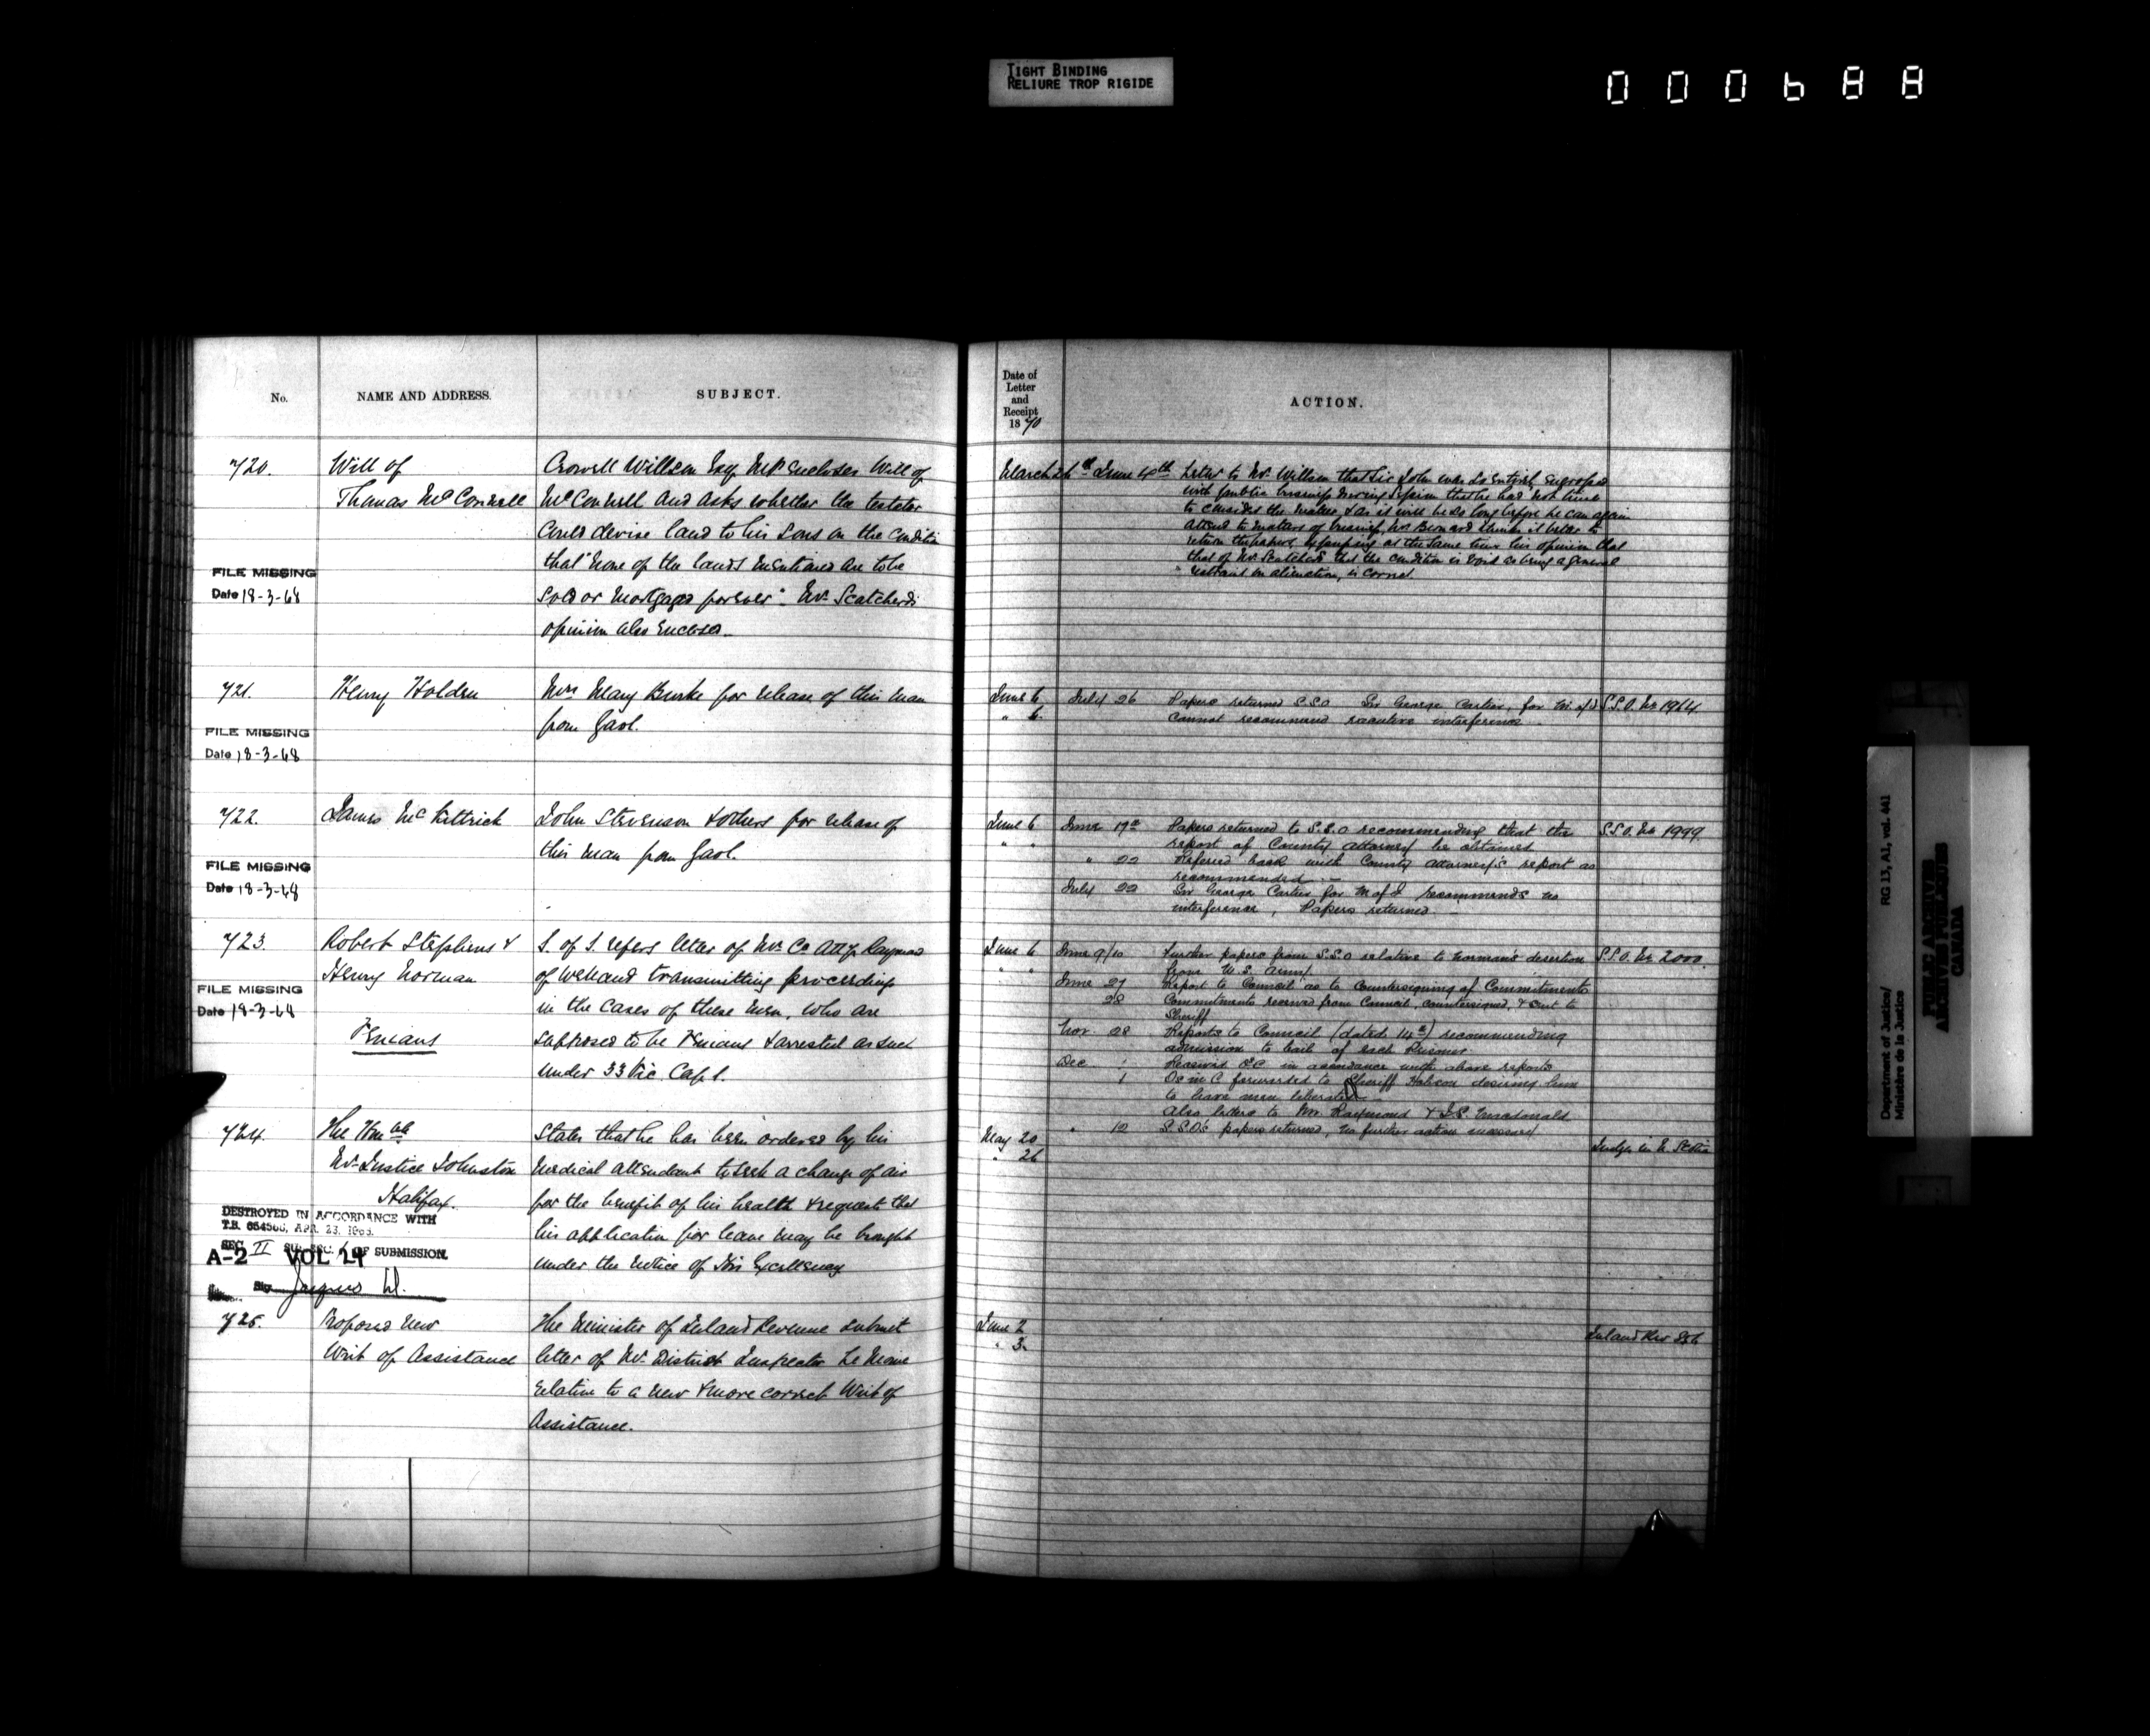 TIGHT BINDING
RELIURE TROP RIGIDE
000688
No.
NAME AND ADDRESS.
SUBJECT.
720.
Will of
Thomas McConnell
Crowell Willson Esq M.P. encloses Will of
McConnell and asks whether the testator
could devise land to his sons on the condition
that "none of the lands mentioned are to be
sold or mortgaged forever". Mr. Scatcherd's
opinion also enclosed.
FILE MISSING
Date 18-3-68
721.
Henry Holden
Mrs Mary Burke for release of this man
from Gaol.
FILE MISSING
Date 18-3-68
722.
James McKittrick
John Stevenson & others for release of
this man from Gaol.
FILE MISSING
Date 18-3-68
723.
Robert Stephens &
Henry Norman
Fenians
S. of S. refers letter of Mr. Co. Atty Raymond
of Welland transmitting proceedings
in the cases of these men, who are
supposed to be Fenians & arrested as such
under 33 Vic. Cap 1.
FILE MISSING
Date 18-3-68
724.
The Honble
Mr. Justice Johnston
Halifax.
States that he has been ordered by his
medical attendant to seek a change of air
for the benefit of his health & requests that
his application for leave may be brought
under the notice of His Excellency
DESTROYED IN ACCORDANCE WITH
T.B. 654500, APR. 23,
SEC. II OF SUBMISSION.
A-2 VOL 24
725.
Proposed New
Writ of Assistance
The Minister of Inland Revenue submit
letter of Mr. District Inspector Le Moine
relative to a new & more correct Writ of
Assistance.
Date of
Letter
and
Receipt
1870
ACTION.
March 26th June 4th Letter to Mr. Willson that Sir John was so entirely engrossed
with public business during Session that he had not time
to consider the matter & as it will be so long before he can again
attend to matters of business, Mr Bernard thinks it better to
return the papers, expressing at the same time his opinion that
that of Mr. Scatcherd that the condition is void as being a general
restraint on alienation, is correct
June 6 July 26 Papers returned S.S.O Sir George Cartier, for M. of J S.S.O. No 1964.
" 6. cannot recommend executive interference.
June 6 June 17th Papers returned to S.S.O recommending that the S.S.O. No 1999.
" " report of County attorney be obtained
" 22 Referred back with County attorney's report as
recommended.
July 22 Sir George Cartier for M of J recommends no
interference, Papers returned.
June 6 June 9/10 Further papers from S.S.O relative to Norman's desertion S.S.O. No. 2000.
" " from U.S. army
June 27 Report to Council as to Countersigning of Commitments
28 Commitments received from Council, countersigned, & sent to
Sheriff
Nov. 28 Reports to Council (dated 14th) recommending
admission to bail of each Prisoner.
Dec. 1 Received OC in accordance with above reports
1 Oc in C forwarded to Sheriff Hobson desiring him
to have men liberated
Also letters to Mr. Raymond & J.S. Macdonald
" 12 S.S.O's papers returned, no further action necessary
May 20
" 26
Judges in N. Scotia
June 2
" 3.
Inland Rev 286
Department of Justice/
Ministère de la Justice
RG 13, A1, vol. 441
PUBLIC ARCHIVES
ARCHIVES PUBLIQUES
CANADA